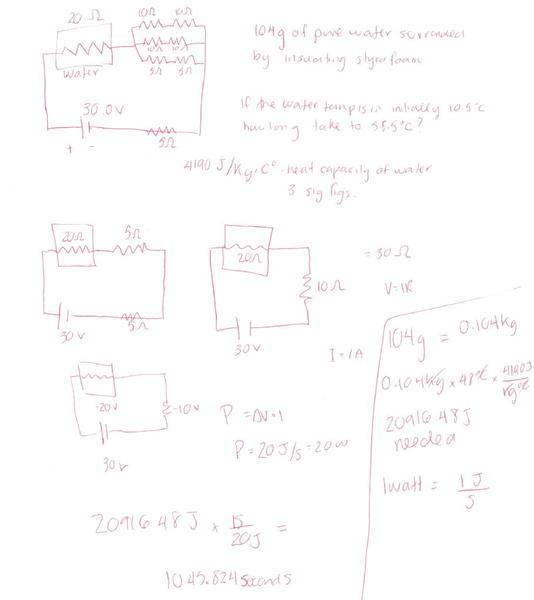 20 Ω
10Ω 10Ω
10Ω 10Ω
5Ω 5Ω
water
30.0v
+ -
5Ω
104g of pure water surronded
by insulating styrofoam
If the water temp is initially 10.5°c
how long take to 55.5°c?
4190 J/Kg·C° - heat capacity of water
3 sig figs.
20Ω 5Ω
30V 5Ω
20Ω
10Ω
30V
= 30Ω
V=IR
I = 1A
-20v
-10v
30v
P = ΔV·I
P = 20 J/s = 20w
104g = 0.104kg
0.104kg × 48°c × 4190J/kg°c
20916.48J
needed
1watt = 1J/s
20916.48J × 1s/20J =
1045.824 seconds